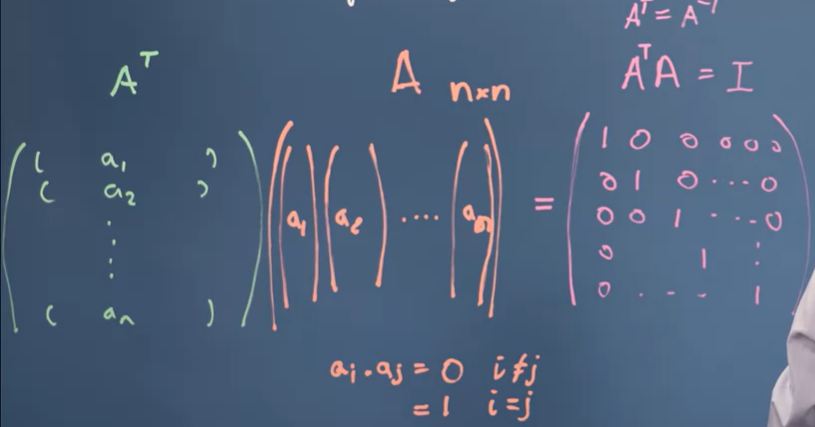 Aᵀ = A⁻¹
Aᵀ
A n×n
AᵀA = I
( a₁ )
( a₂ )
⋮
( aₙ )
a₁ a₂ ···· aₙ
=
1 0 0 0 0 0
0 1 0 ··· 0
0 0 1 ··· 0
0 1 ⋮
0 · - - 1
aᵢ · aⱼ = 0 i ≠ j
= 1 i = j